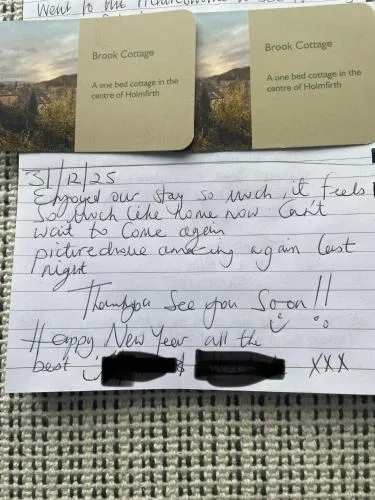 Went to the Picturedrome to see
Brook Cottage
A one bed cottage in the
centre of Holmfirth
Brook Cottage
A one bed cottage in the
centre of Holmfirth
31/12/25
Enjoyed our stay so much it feels
so much like home now. Can't
wait to come again
picturedrome amazing again last
night
Thankyou see you soon!!
Happy New Year all the
best
xxx